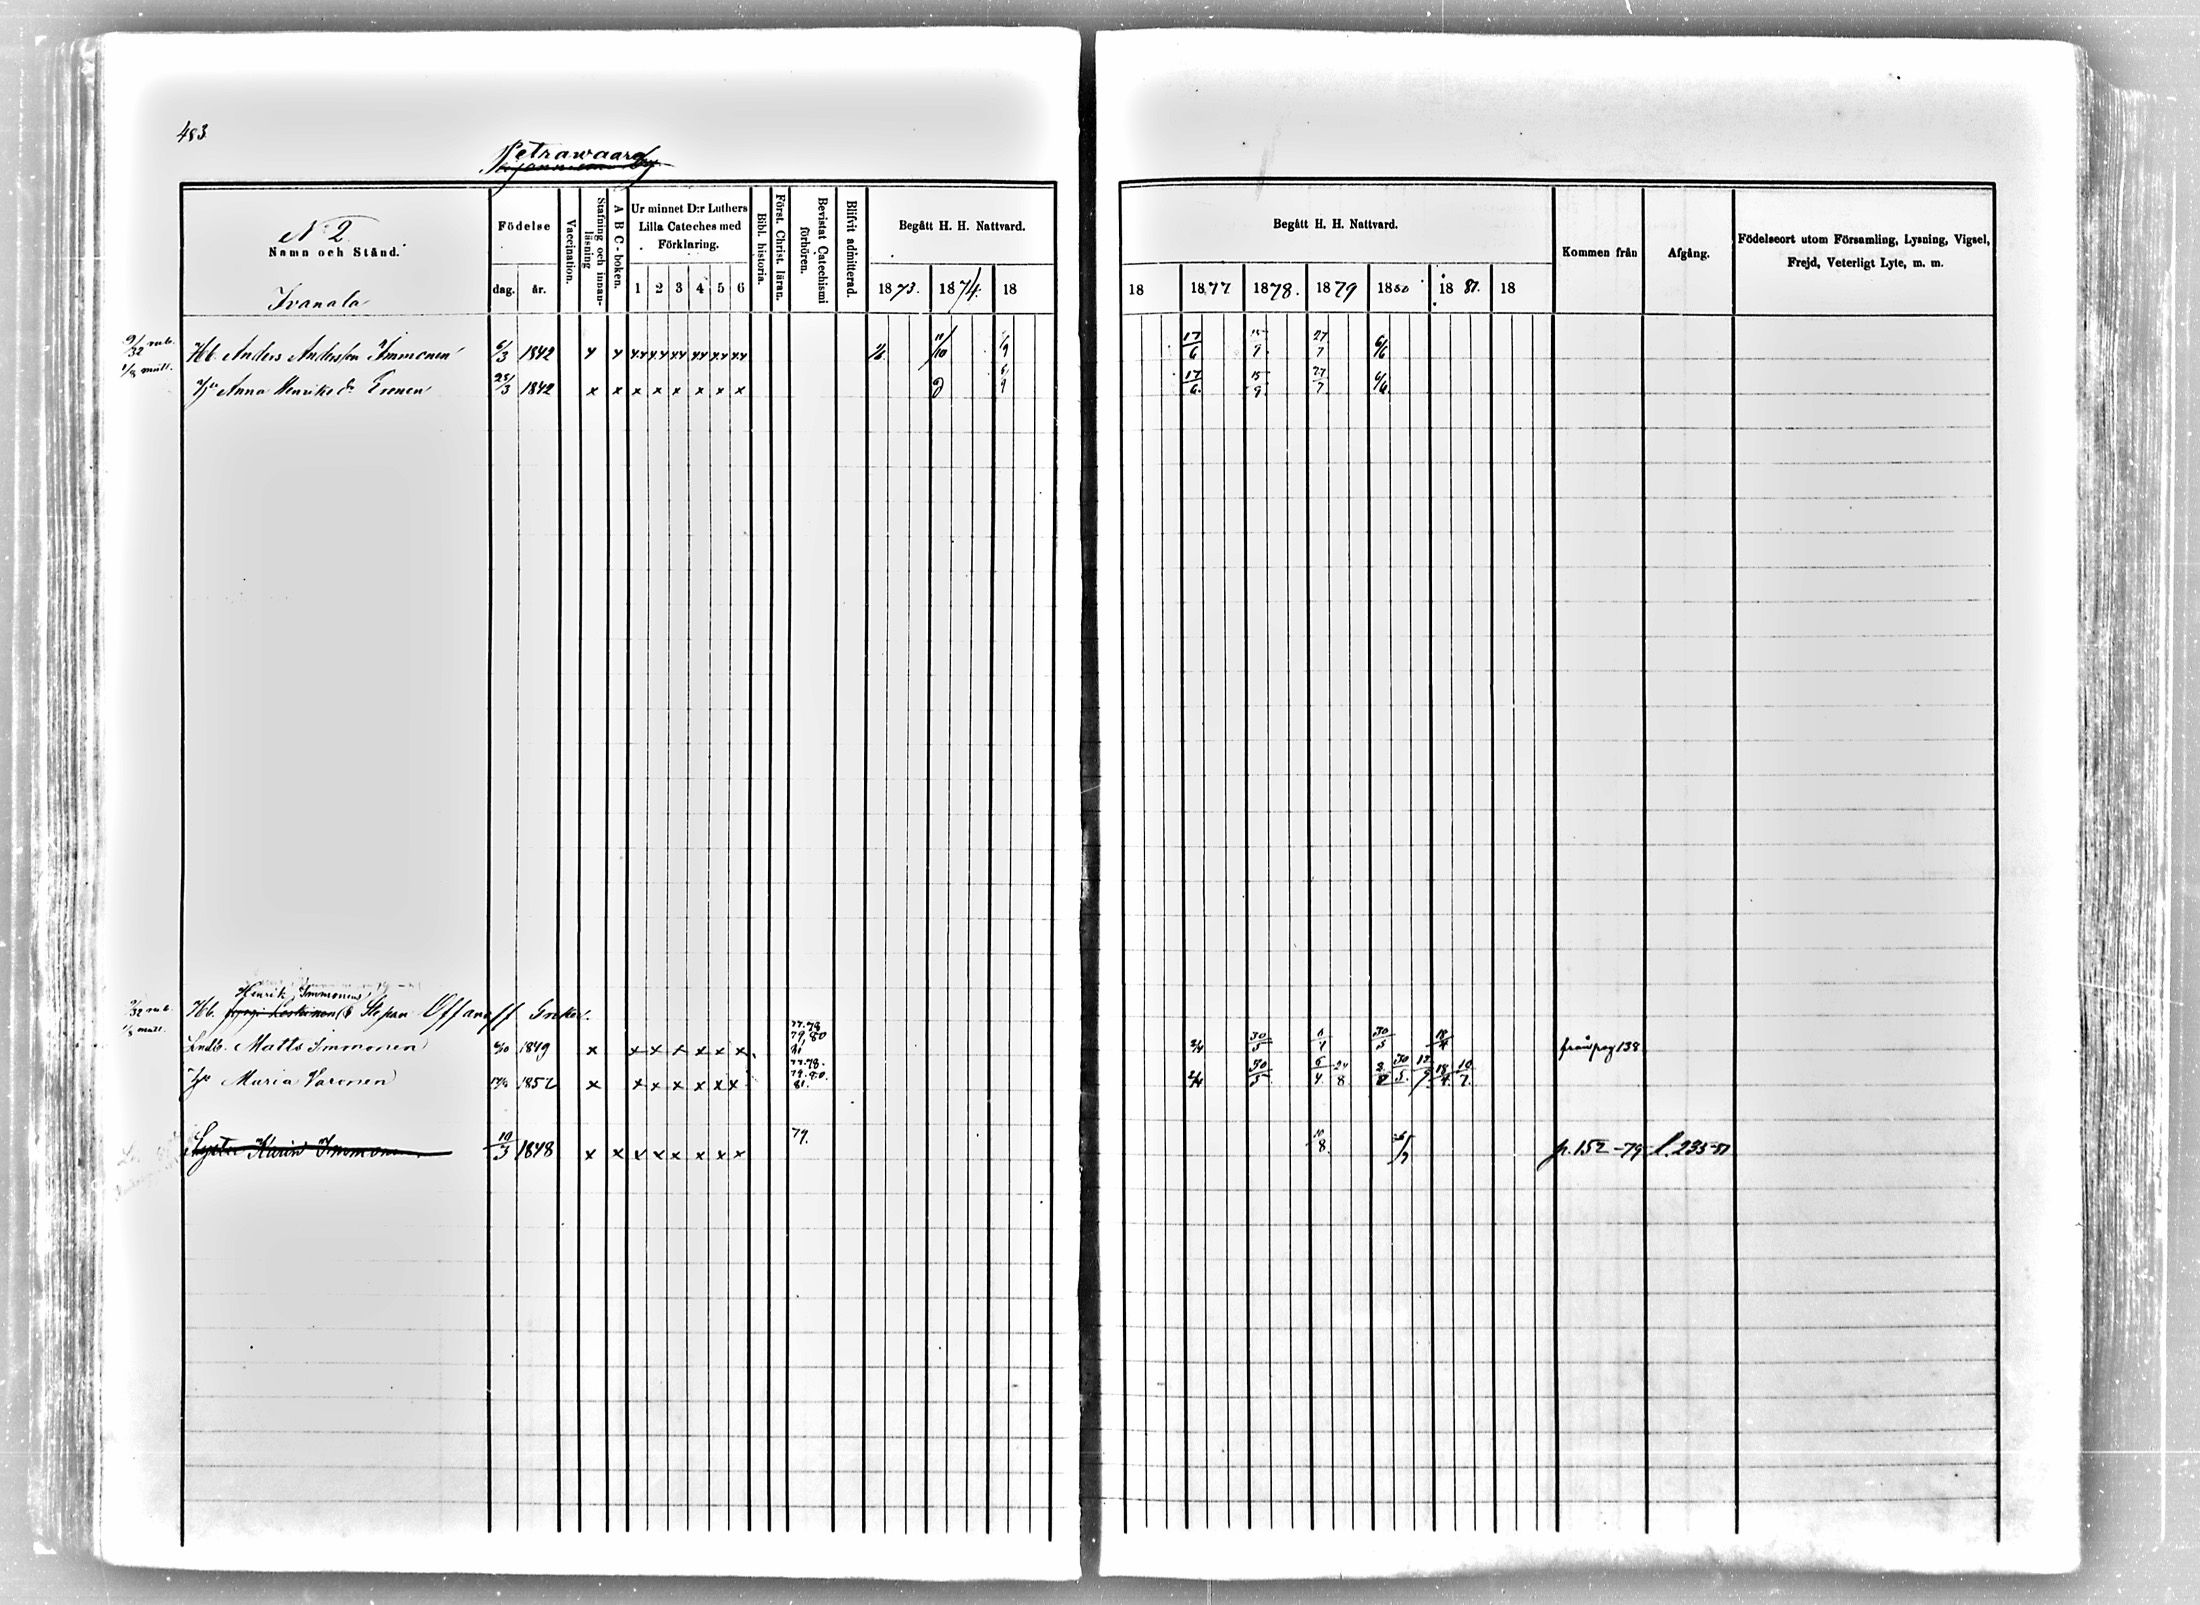 483
Petrawaara
by
N 2
Namn och Stånd.
Ivanala
Födelse
dag. år.
Vaccination.
Stafning och innanläsning
A B C-boken.
Ur minnet D:r Luthers Lilla Cateches med Förklaring.
1 2 3 4 5 6
Bibl. historia.
Först. Christ. läran.
Bevistat Catechismi förhören.
Blifvit admitterad.
Begått H. H. Nattvard.
1873. 1874. 18
Begått H. H. Nattvard.
18 1877 1878. 1879 1880 1881. 18
Kommen från
Afgång.
Födelseort utom Församling, Lysning, Vigsel, Frejd, Veterligt Lyte, m. m.
9/32 mtl.
1/8 mutl.
Hb. Anders Andersson Immonen 6/3 1842 11/10 1/9 17/6 15/9 27/7 6/6
Anna Henriksdr 25/3 1842 17/6 15/9 27/7 6/6
Henrik Immonens
Hb. Stepan Offanoff
1/8 mutl.
Matts Immonen 1849 77.78 79,80 2/4 30/5 30/5 18/4 från pag 138
Maria Varonen 1852 77.78. 79.80. 81. 2/4 30/5 6/4 24/8 30/5 18/4 10/7
Syster Karin Immonen 19/3 1848 79. 10/8 p. 152-79 l. 235-81